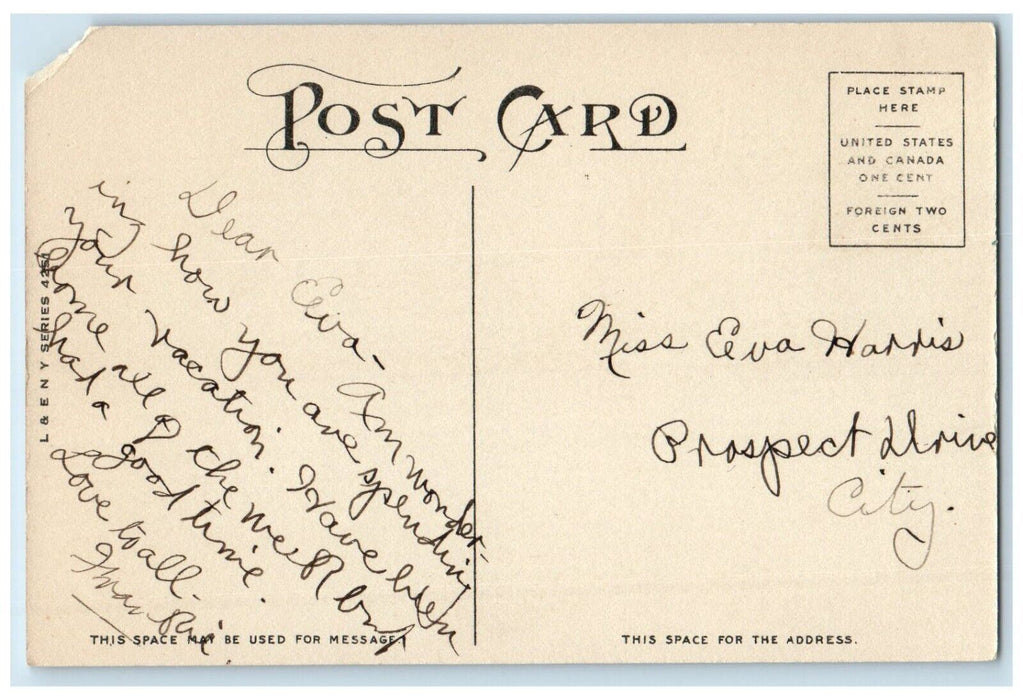 POST CARD
PLACE STAMP
HERE
UNITED STATES
AND CANADA
ONE CENT
FOREIGN TWO
CENTS
Dear Eva- Am wonder-
ing how you are spending
your vacation. Have been
home all of the week but
had a good time.
Love to all.
Frankie.
Miss Eva Harris
Prospect Drive
City.
L & E N Y SERIES 4251
THIS SPACE MAY BE USED FOR MESSAGE
THIS SPACE FOR THE ADDRESS.